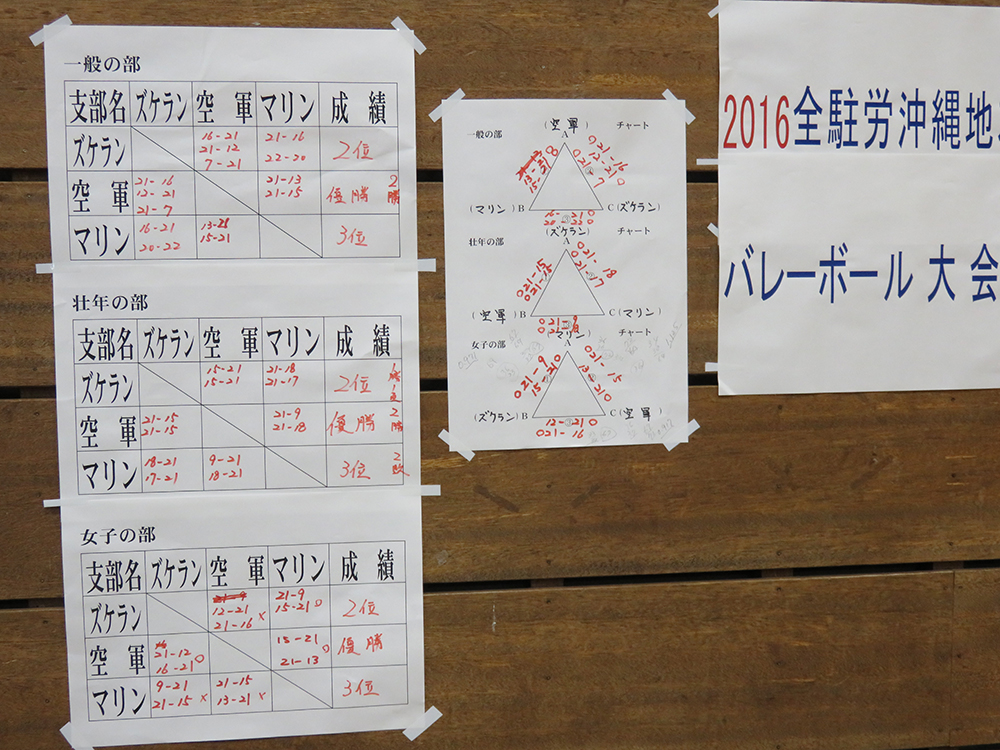 一般の部
支部名 ズケラン 空軍 マリン 成績
ズケラン 16-21 21-16 2位
21-12 22-20
7-21
空軍 21-16 21-13 優勝 2勝
12-21 21-15
21-7
マリン 16-21 13-21 3位
20-22 15-21
壮年の部
支部名 ズケラン 空軍 マリン 成績
ズケラン 15-21 21-18 2位
15-21 21-17
空軍 21-15 21-9 優勝 2勝
21-15 21-18
マリン 18-21 9-21 3位 2敗
17-21 18-21
女子の部
支部名 ズケラン 空軍 マリン 成績
ズケラン 21-9 2位
12-21 15-21 ○
21-16 ×
空軍 21-12 15-21 ○ 優勝
16-21 ○ 21-13
マリン 9-21 21-15 3位
21-15 × 13-21 ×
一般の部 (空軍) チャート
A
021-16
12-21 0
(マリン) B C (ズケラン)
(ズケラン)
壮年の部 A チャート
021-15 021-18
021-15 021-17
(空軍) B C (マリン)
021-9
(マリン)
女子の部 A チャート
021-9 021-15
15-210 13-210
(ズケラン) B C (空軍)
12-210
021-16
2016全駐労沖縄地
バレーボール大会